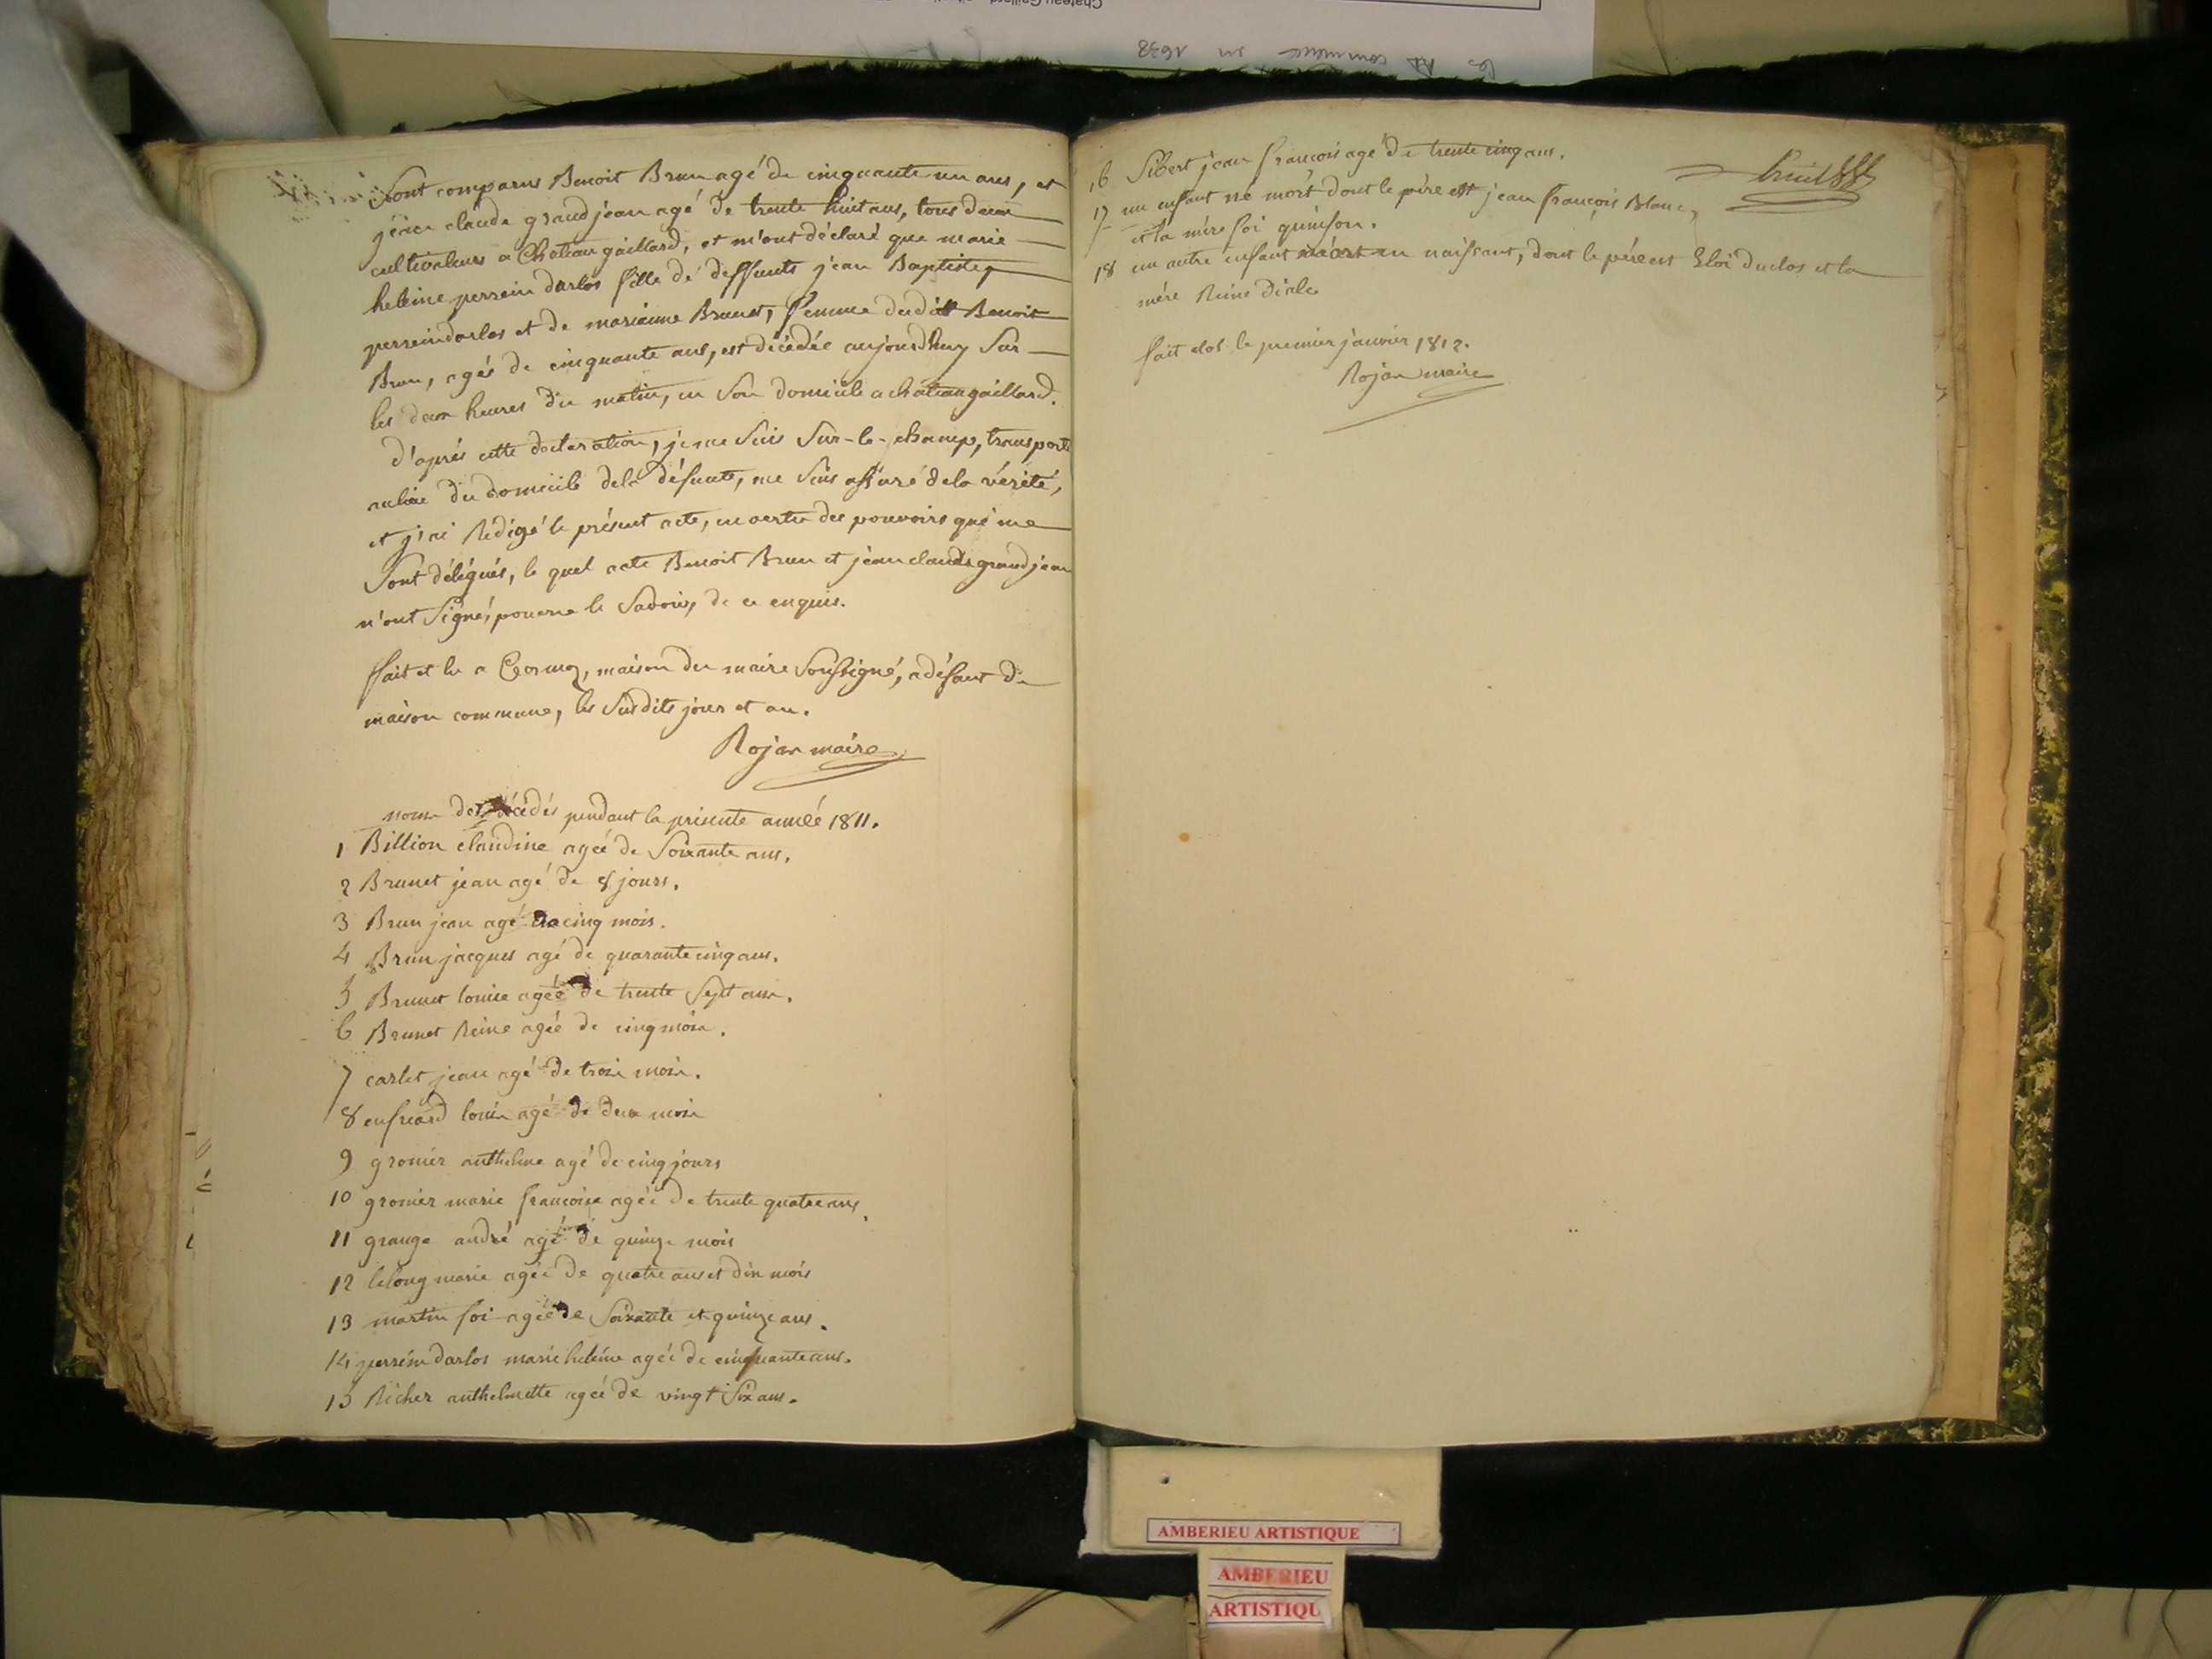 Sont comparus Benoit Brun agé de cinquante un ans, et
jean claude grandjean agé de trente huit ans, tous deux
cultivateurs a Chateaugaillard, et m'ont déclaré que marie
heleine perrein darlos fille de deffunts jean Baptiste
perreindarlos et de marianne Brunet, femme dudit Benoit
Brun, agée de cinquante ans, est décédée aujourdhuy Sur
les deux heures du matin, en Son domicile a chateaugaillard.
d'aprés cette declaration, je me Suis Sur-le-champ, transporté
au lieu du domicile dela défunte, me Suis assuré dela vérité,
et j'ai Rédigé le présent acte, en vertu des pouvoirs qui me
Sont délégués, le quel acte Benoit Brun et jean claude grandjean
n'ont Signé, pour ne le Savoir, de ce enquis.
fait et lu a Cormoz, maison du maire Soussigné, a défaut de
maison commune, les Susdits jour et an.
Rojan maire
noms des décédés pendant la présente année 1811.
1 Billion claudine agée de Soixante ans.
2 Brunet jean agé de 8 jours.
3 Brun jean agé de cinq mois.
4 Brun jacques agé de quarante cinq ans.
5 Brunet louise agée de trente Sept ans.
6 Brunet Reine agée de cinq mois.
7 carlet jean agé de trois mois.
8 louis agé de deux mois
9 gromier anthelme agé de cinq jours
10 gromier marie francoise agée de trente quatre ans.
11 grange andré agé de quinze mois
12 lelong marie agée de quatre ans et dix mois
13 martin foi agée de Soixante et quinze ans.
14 perrein darlos marie heleine agée de cinquante ans.
15 Richer anthelmette agée de vingt Six ans.
16 Sibert jean francois agé de trente cinq ans.
17 un enfant né mort dont le pére est jean françois Blanc,
et la mére foi quinson.
18 un autre enfant mort en naissant, dont le pére est Eloi duclos et la
mére Reine
fait clos le premier janvier 1812.
Rojan maire
AMBERIEU ARTISTIQUE
AMBERIEU
ARTISTIQU